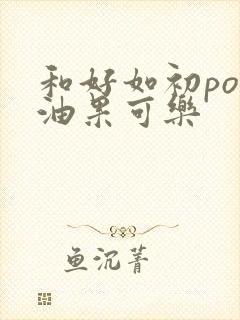 和好如初po
油果可樂
鱼沉菁